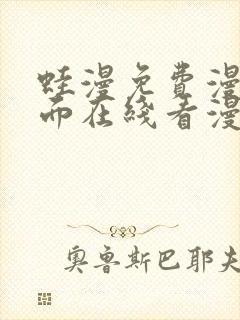 蛙漫免費漫
而在线看漫
奥鲁斯巴耶夫